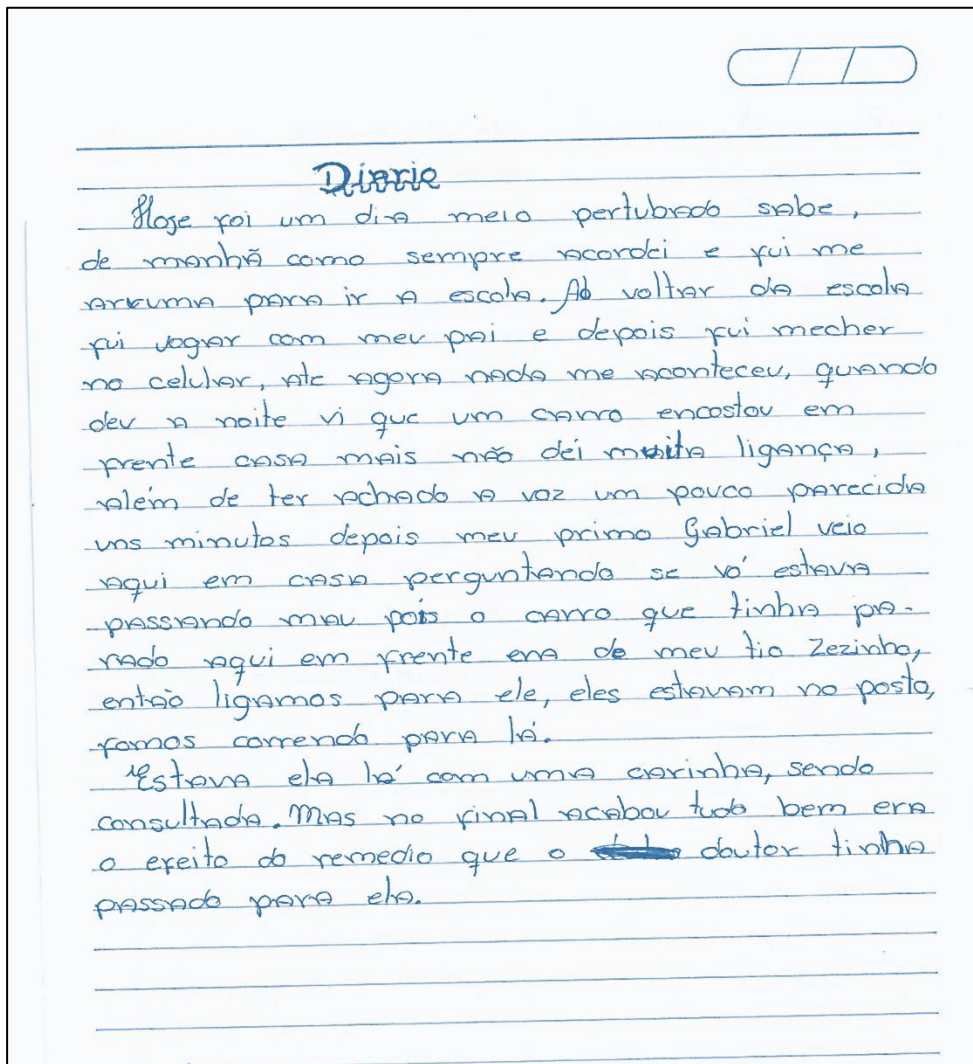 Diario
Hoje foi um dia meio pertubado sabe,
de manhã como sempre acordei e fui me
arruma para ir a escola. Ao voltar da escola
fui jogar com meu pai e depois fui mecher
no celular, ate agora nada me aconteceu, quando
deu a noite vi que um carro encostou em
frente casa mais não dei muita ligança,
além de ter achado a voz um pouco parecida
uns minutos depois meu primo Gabriel veio
aqui em casa perguntando se vó estava
passando mau pois o carro que tinha pa-
rado aqui em frente era de meu tio Zezinho,
então ligamos para ele, eles estavam no posto,
fomos correndo para lá.
Estava ela lá com uma carinha, sendo
consultada. Mas no final acabou tudo bem era
o efeito do remedio que o doutor tinha
passado para ela.